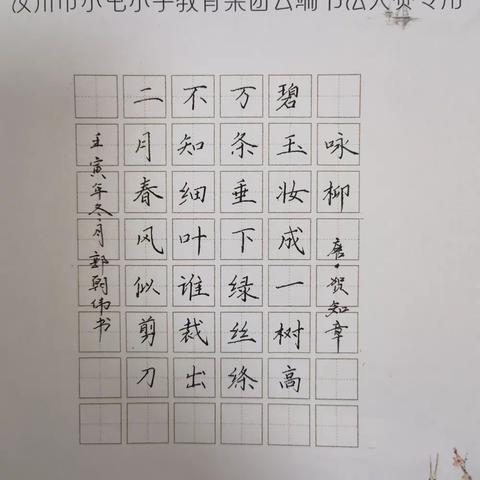 汝州市小屯小学教育集团云端书法大赛专用
咏柳 唐·贺知章
碧玉妆成一树高
万条垂下绿丝绦
不知细叶谁裁出
二月春风似剪刀
壬寅年冬月郭朝伟书